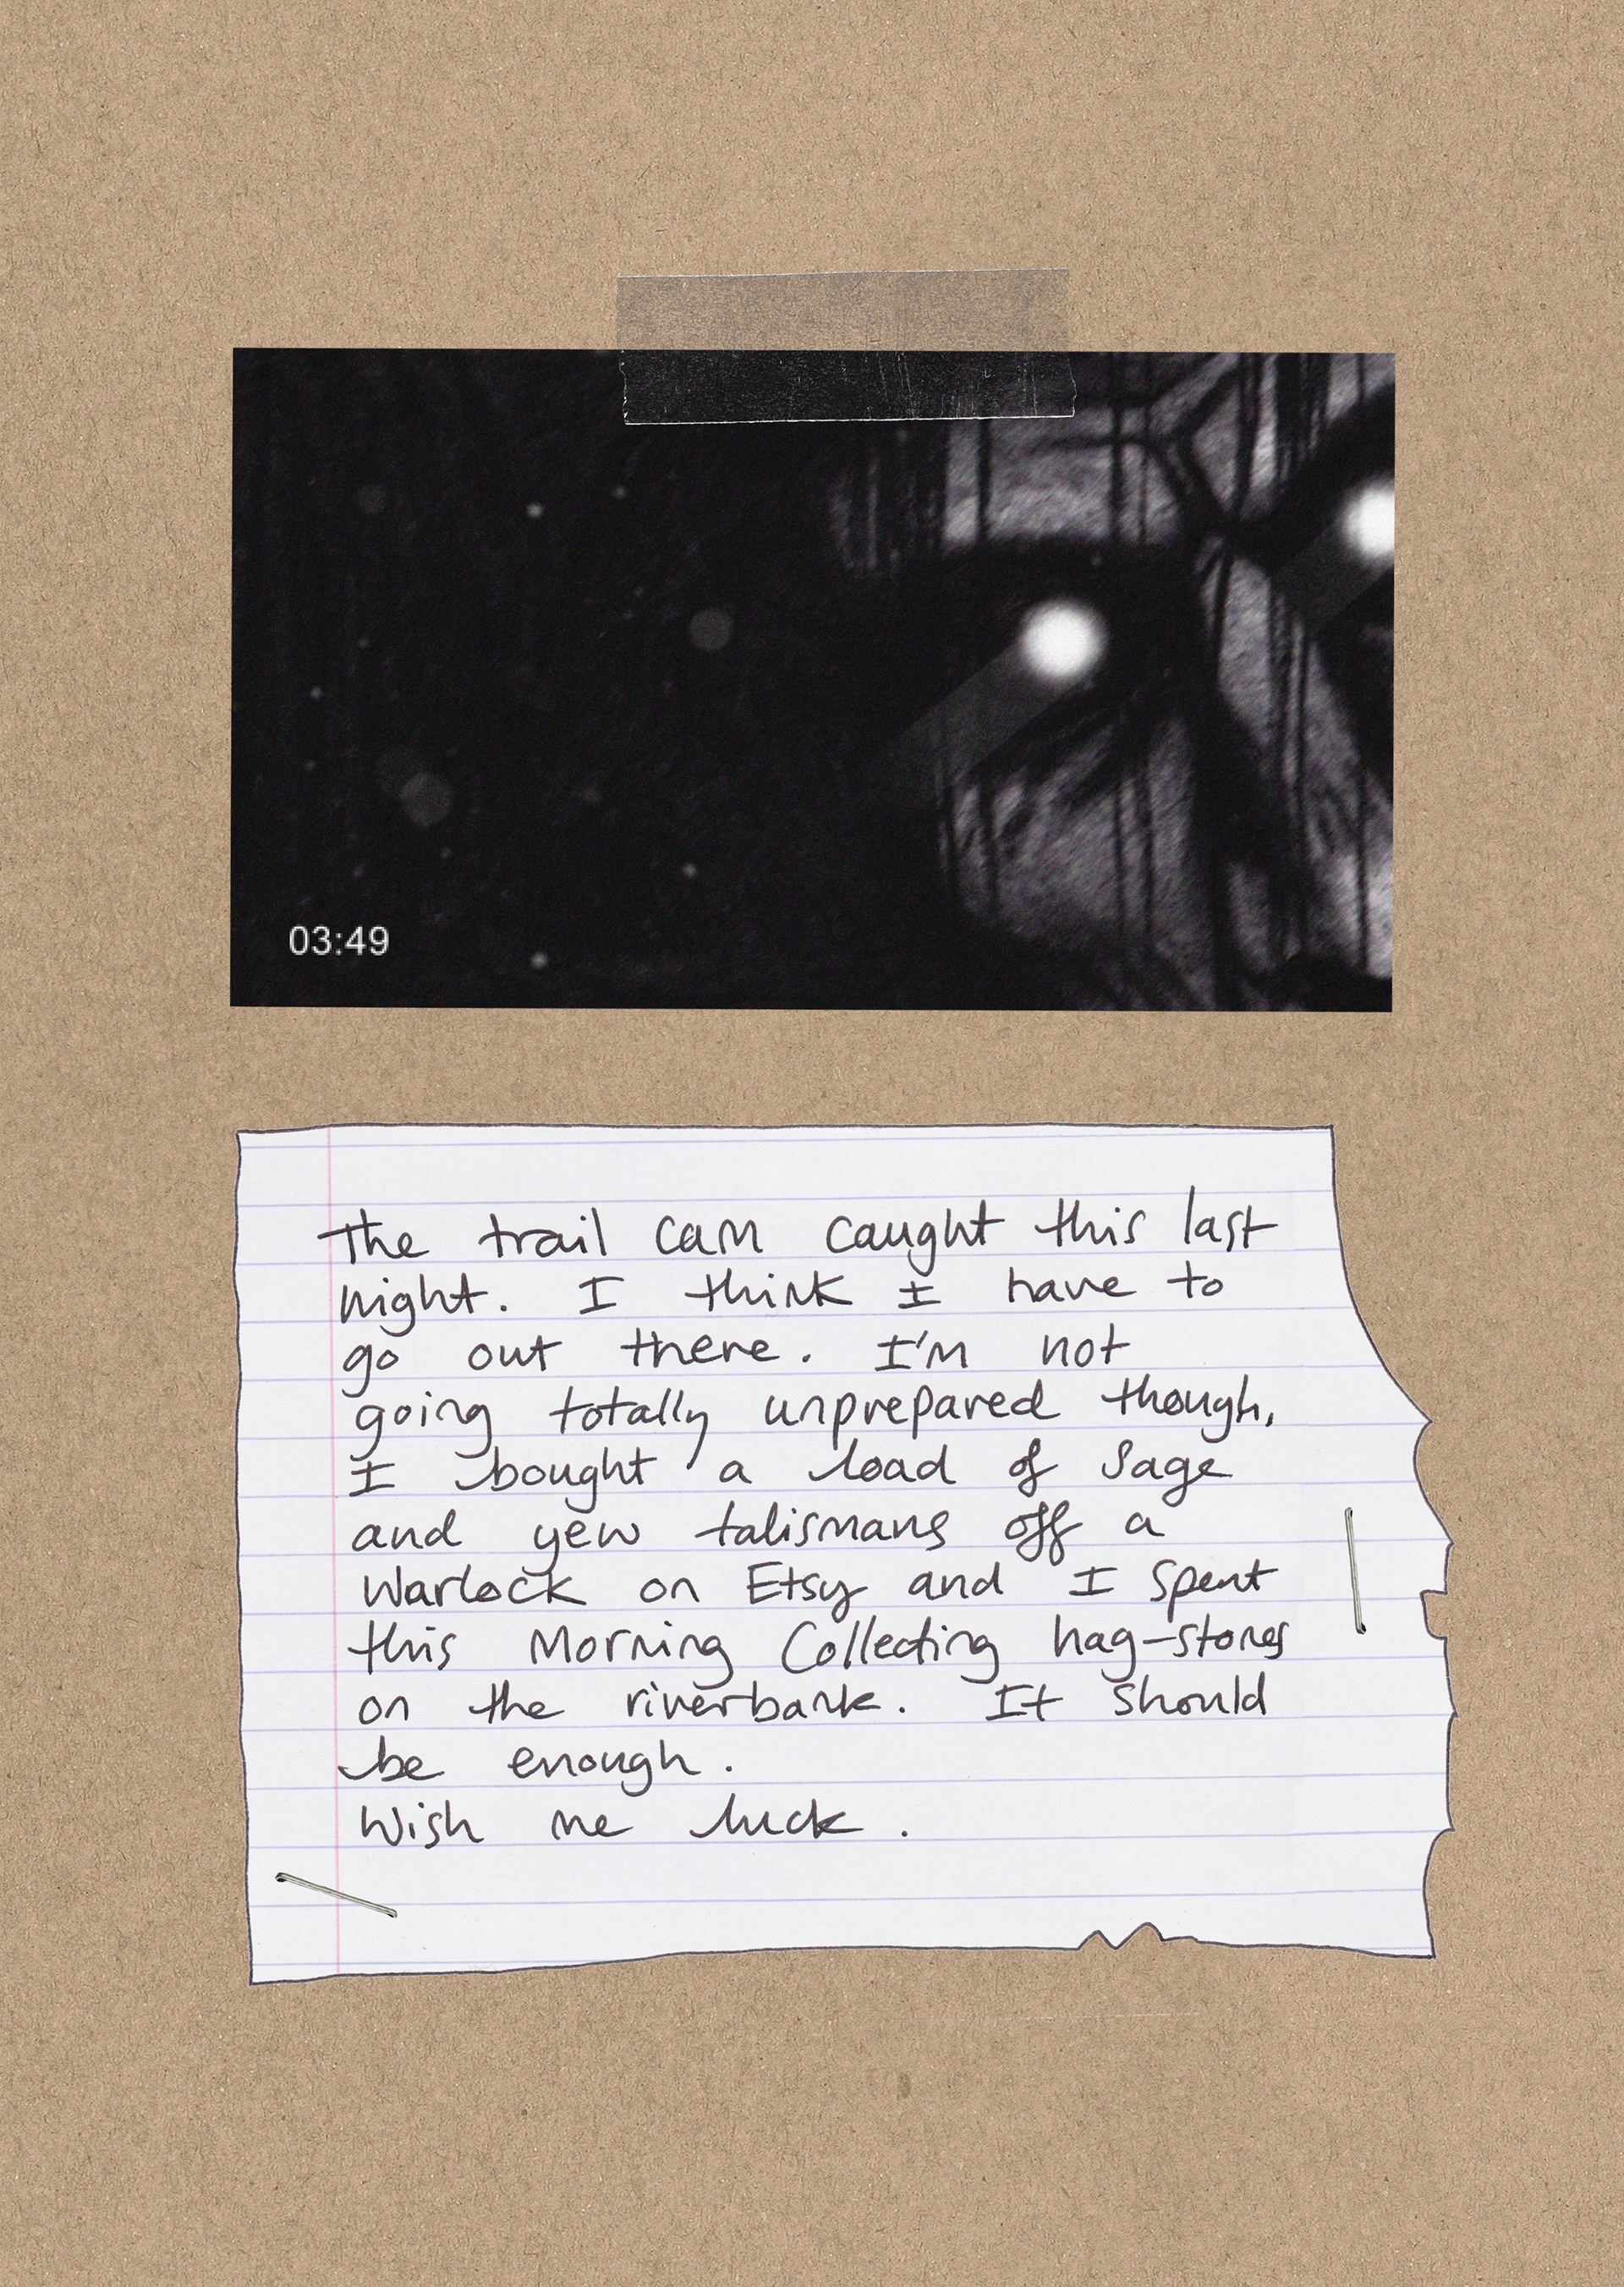 03:49
The trail cam caught this last
night. I think I have to
go out there. I'm not
going totally unprepared though,
I bought a load of sage
and yew talismans off a
Warlock on Etsy and I spent
this morning collecting hag-stones
on the riverbank. It should
be enough.
Wish me luck.